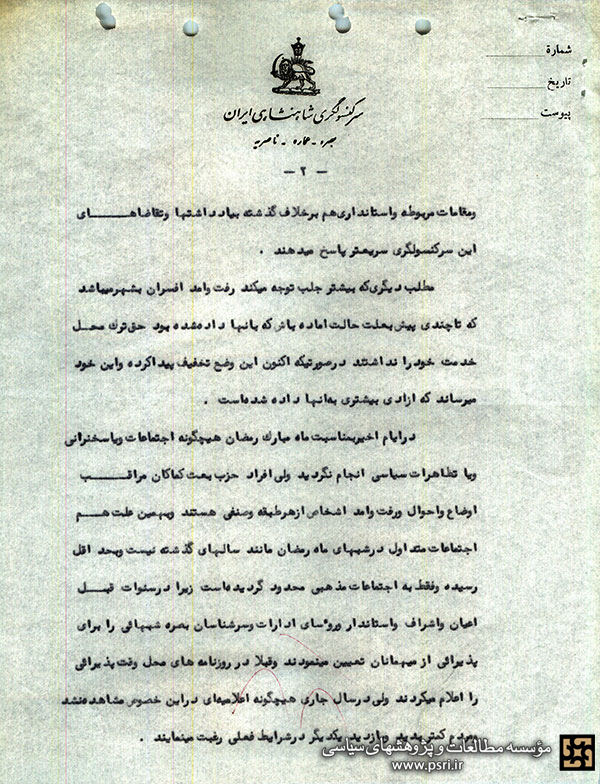 شمارهٔ
تاریخ
پیوست
سرکنسولگری شاهنشاهی ایران
بصره - عماره - ناصریه
— ۲ —
ومقامات مربوطه واستانداری هم برخلاف گذشته بیادداشتها وتقاضاهـــای
این سرکنسولگری سریعتر پاسخ میدهند .
مطلب دیگری که بیشتر جلب توجه میکند رفت وامد افسران بشهرمیباشد
که تاچندی پیش بعلت حالت اماده باش که بانها داده شده بود حق ترك محـل
خدمت خودرا نداشتند درصورتیکه اکنون این وضع تخفیف پیداکرده واین خود
میرساند که ازادی بیشتری به انها داده شده است .
درایام اخیربمناسبت ماه مبارك رمضان هیچگونه اجتماعات ویاسخنرانی
ویا تظاهرات سیاسی انجام نگردید ولی افراد حزب بعث کماکان مراقـــب
اوضاع واحوال ورفت وامد اشخاص ازهرطبقه وصنفی هستند وبهمین علت هـم
اجتماعات متداول درشبهای ماه رمضان مانند سالهای گذشته نیست وبحد اقل
رسیده وفقط به اجتماعات مذهبی محدود گردیده است زیرا درسنوات قبـــل
اعیان واشراف واستاندار وروسای ادارات وسرشناسان بصره شبهائی را برای
پذیرائی از میهمانان تعیین مینمودند وقبلا در روزنامه های محل وقت پذیرائی
را اعلام میکردند ولی درسال جاری هیچگونه اعلامیه‌ای دراین خصوص مشاهده نشد
ومردم کمتر بدید وبازدید یکدیگر درشرایط فعلی رغبت مینمایند .
مؤسسه مطالعات و پژوهشهای سیاسی
www.psri.ir